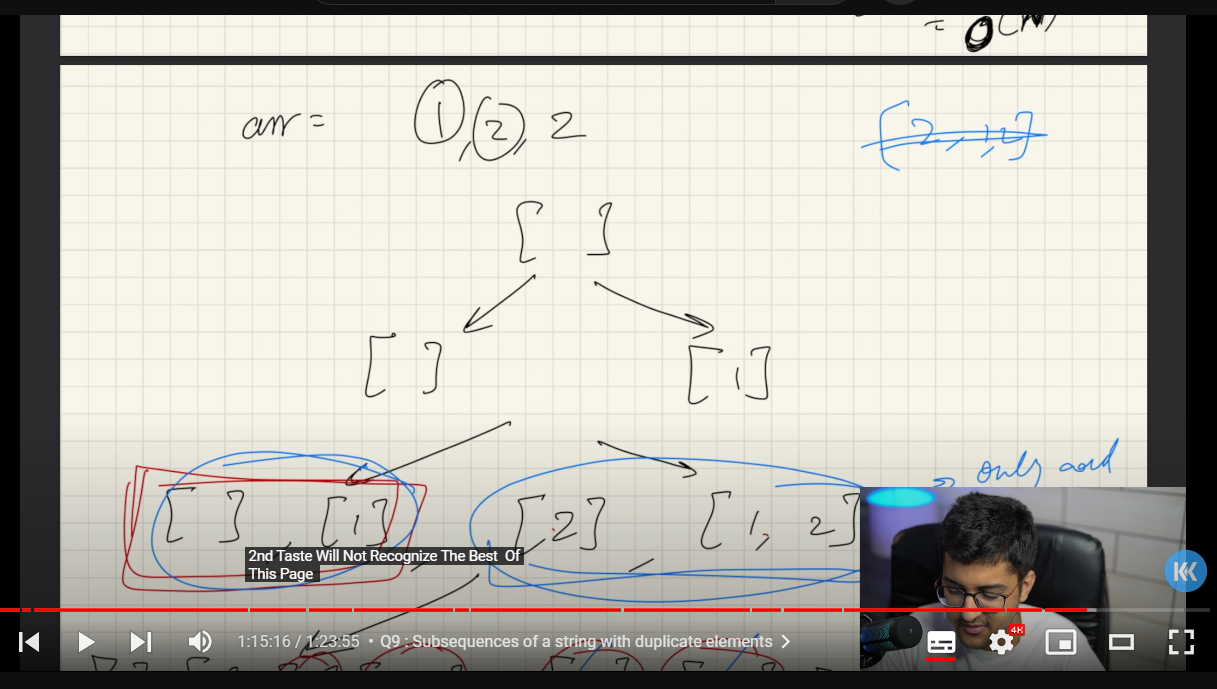 = O(N)
arr = 1, 2, 2
[2, 1, 2]
[ ]
[ ] [1]
only add
[ ], [1] [2], [1, 2]
2nd Taste Will Not Recognize The Best Of
This Page
1:15:16 / 1:23:55 • Q9 : Subsequences of a string with duplicate elements
4K